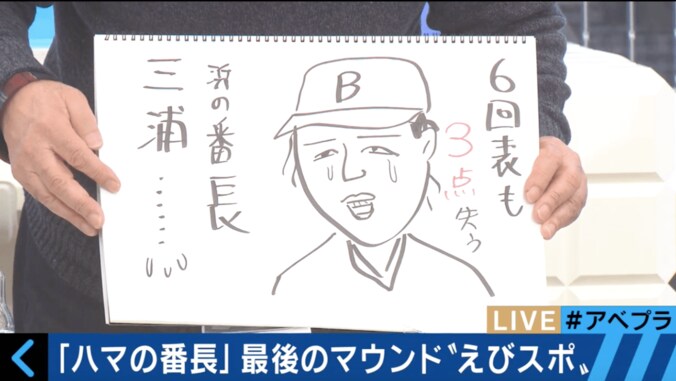 6回表も
3点失う
B
浜の番長
三浦……
LIVE
#アベプラ
「ハマの番長」最後のマウンド〝えびスポ〟